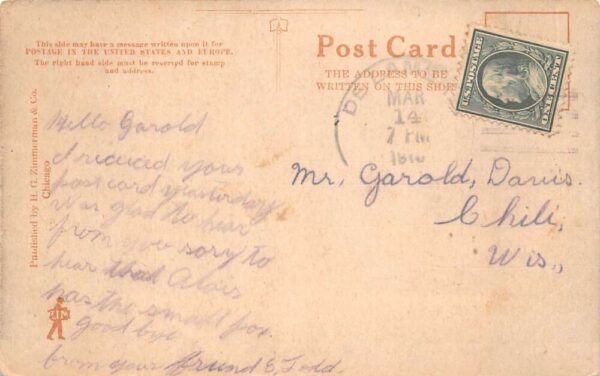 This side may have a message written upon it for
POSTAGE IN THE UNITED STATES AND EUROPE.
The right hand side must be reserved for stamp
and address.
Post Card
THE ADDRESS TO BE
WRITTEN ON THIS SIDE
U.S. POSTAGE
ONE CENT
MAR
14
7 PM
1910
Published by H. G. Zimmerman & Co.
Chicago
Hello Garold
I recieved your
post card yesterday
was glad to hear
from you sory to
hear that
has the small pox.
good bye
from your friend E. Todd.
Mr. Garold, Davis.
Chili,
Wis.,